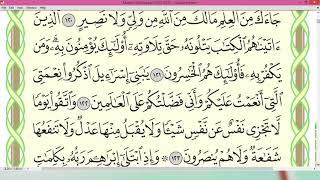 جَآءَكَ مِنَ ٱلْعِلْمِ مَالَكَ مِنَ ٱللَّهِ مِن وَلِىٍّ وَلَا نَصِيرٍ ١٢٠ ٱلَّذِينَ
ءَاتَيْنَٰهُمُ ٱلْكِتَٰبَ يَتْلُونَهُۥ حَقَّ تِلَاوَتِهِۦٓ أُو۟لَٰٓئِكَ يُؤْمِنُونَ بِهِۦ وَمَن
يَكْفُرْ بِهِۦ فَأُو۟لَٰٓئِكَ هُمُ ٱلْخَٰسِرُونَ ١٢١ يَٰبَنِىٓ إِسْرَٰٓءِيلَ ٱذْكُرُوا۟ نِعْمَتِىَ
ٱلَّتِىٓ أَنْعَمْتُ عَلَيْكُمْ وَأَنِّى فَضَّلْتُكُمْ عَلَى ٱلْعَٰلَمِينَ ١٢٢ وَٱتَّقُوا۟ يَوْمًا
لَّا تَجْزِى نَفْسٌ عَن نَّفْسٍ شَيْـًٔا وَلَا يُقْبَلُ مِنْهَا عَدْلٌ وَلَا تَنفَعُهَا
شَفَٰعَةٌ وَلَا هُمْ يُنصَرُونَ ١٢٣ ۞ وَإِذِ ٱبْتَلَىٰٓ إِبْرَٰهِـۧمَ رَبُّهُۥ بِكَلِمَٰتٍ